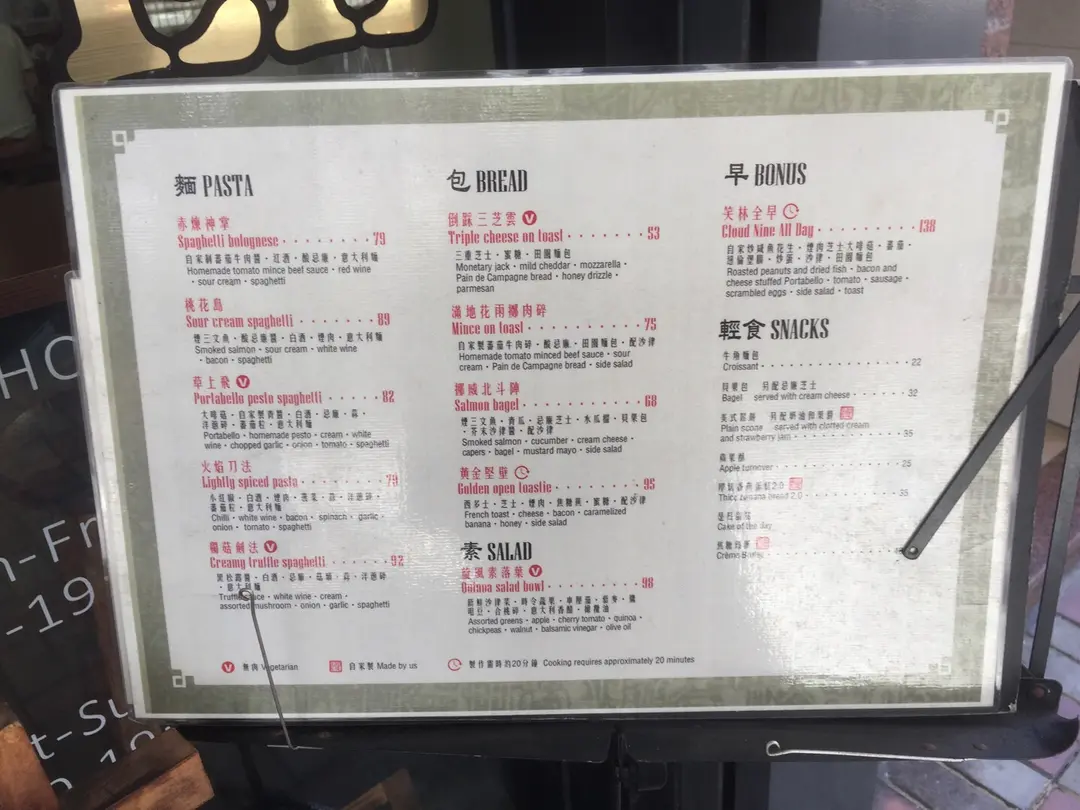 麵 PASTA
赤煉神掌
Spaghetti bolognese 79
自家制蕃茄牛肉醬・紅酒・酸忌廉・意大利麵
Homemade tomato mince beef sauce • red wine
• sour cream • spaghetti
桃花島
Sour cream spaghetti 89
煙三文魚・酸忌廉醬・白酒・煙肉・意大利麵
Smoked salmon • sour cream • white wine
• bacon • spaghetti
草上飛 V
Portabello pesto spaghetti 82
大啡菇・自家製青醬・白酒・忌廉・蒜・
洋蔥碎・蕃茄粒・意大利麵
Portabello • homemade pesto • cream • white
wine • chopped garlic • onion • tomato • spaghetti
火焰刀法
Lightly spiced pasta 79
小紅椒・白酒・煙肉・菠菜・蒜・洋蔥碎・
蕃茄粒・意大利麵
Chilli • white wine • bacon • spinach • garlic •
onion • tomato • spaghetti
獨菇劍法 V
Creamy truffle spaghetti 92
黑松露醬・白酒・忌廉・菇類・蒜・洋蔥碎
・意大利麵
Truffle sauce • white wine • cream •
assorted mushroom • onion • garlic • spaghetti
包 BREAD
倒踩三芝雲 V
Triple cheese on toast 53
三重芝士・蜜糖・田園麵包
Monetary jack • mild cheddar • mozzarella •
Pain de Campagne bread • honey drizzle •
parmesan
滿地花雨擲肉碎
Mince on toast 75
自家製蕃茄牛肉碎・酸忌廉・田園麵包・配沙律
Homemade tomato minced beef sauce • sour
cream • Pain de Campagne bread • side salad
挪威北斗陣
Salmon bagel 68
煙三文魚・青瓜・忌廉芝士・水瓜榴・貝果包
・芥末沙律醬・配沙律
Smoked salmon • cucumber • cream cheese •
capers • bagel • mustard mayo • side salad
黃金堅壘
Golden open toastie 95
西多士・芝士・煙肉・焦糖蕉・蜜糖・配沙律
French toast • cheese • bacon • caramelized
banana • honey • side salad
素 SALAD
旋風素落葉 V
Quinoa salad bowl 98
Assorted greens • apple • cherry tomato • quinoa •
chickpeas • walnut • balsamic vinegar • olive oil
早 BONUS
笑林全早
Cloud Nine All Day 138
自家炒咸魚花生・煙肉芝士大啡菇・蕃茄・
・炒蛋・沙律・田園麵包
Roasted peanuts and dried fish • bacon and
cheese stuffed Portabello • tomato • sausage •
scrambled eggs • side salad • toast
輕食 SNACKS
牛角麵包
Croissant 22
貝果包 另配忌廉芝士
Bagel served with cream cheese 32
英式鬆餅
Plain scone served with clotted cream
and strawberry jam 35
蘋果酥
Apple turnover 25
2.0
Thick banana bread 2.0 35
Cake of the day
V 無肉 Vegetarian
自家製 Made by us
製作需時約20分鐘 Cooking requires approximately 20 minutes